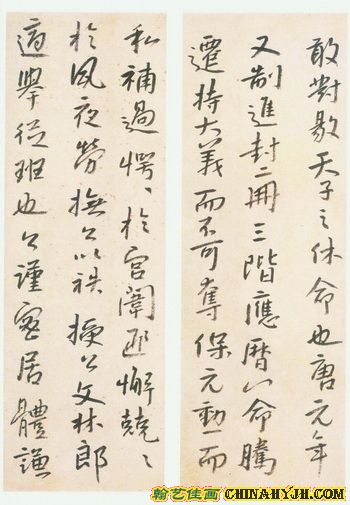 敢對敭天子之休命也唐元年
又制進封二冊三階應曆命騰
遷持大義而不可奪保元勳一而
私補過愕〻於宮闈匪懈兢〻
於夙夜勞撫公以秩擢公文林郎
適舉從班也公謹密居體謙
翰艺佳画 CHINAHYJH.COM